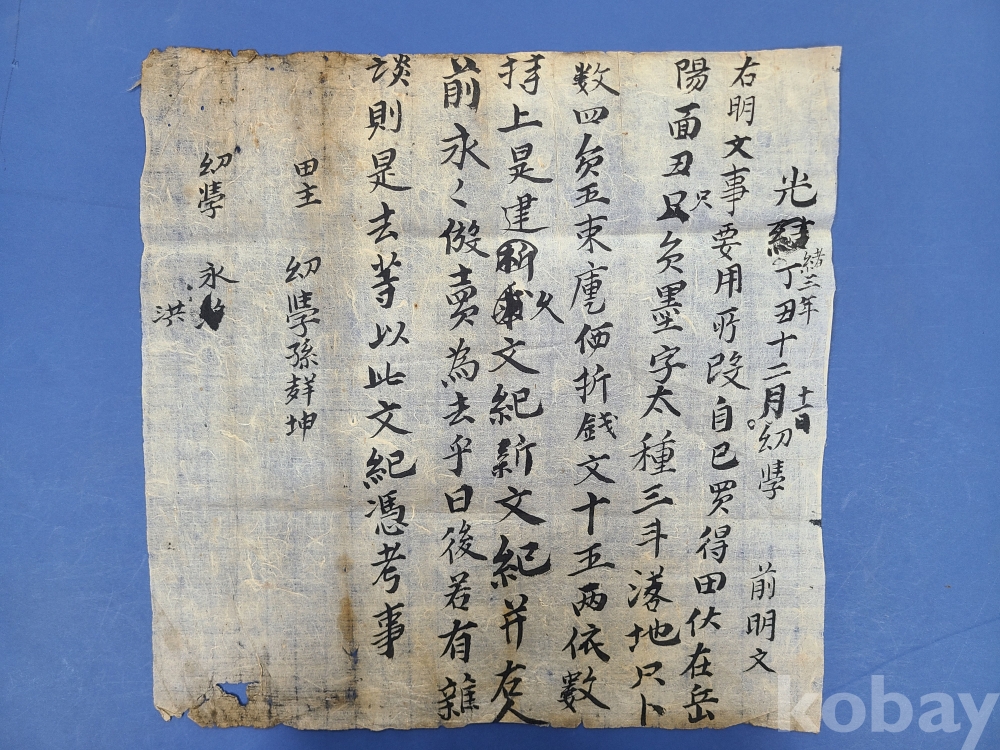 光緒三年丁丑十二月十一日幼學 前明文
右明文事要用所致自己買得田伏在岳
陽面丑只員墨字太種三斗落地只卜
数四負五束庫価折錢文十五兩依數
持上是遣文文紀新文紀并右人
前永々放賣為去乎日後若有雜
談則是去等以此文紀憑考事
田主 幼學孫 坤
幼學 永洪
kobay